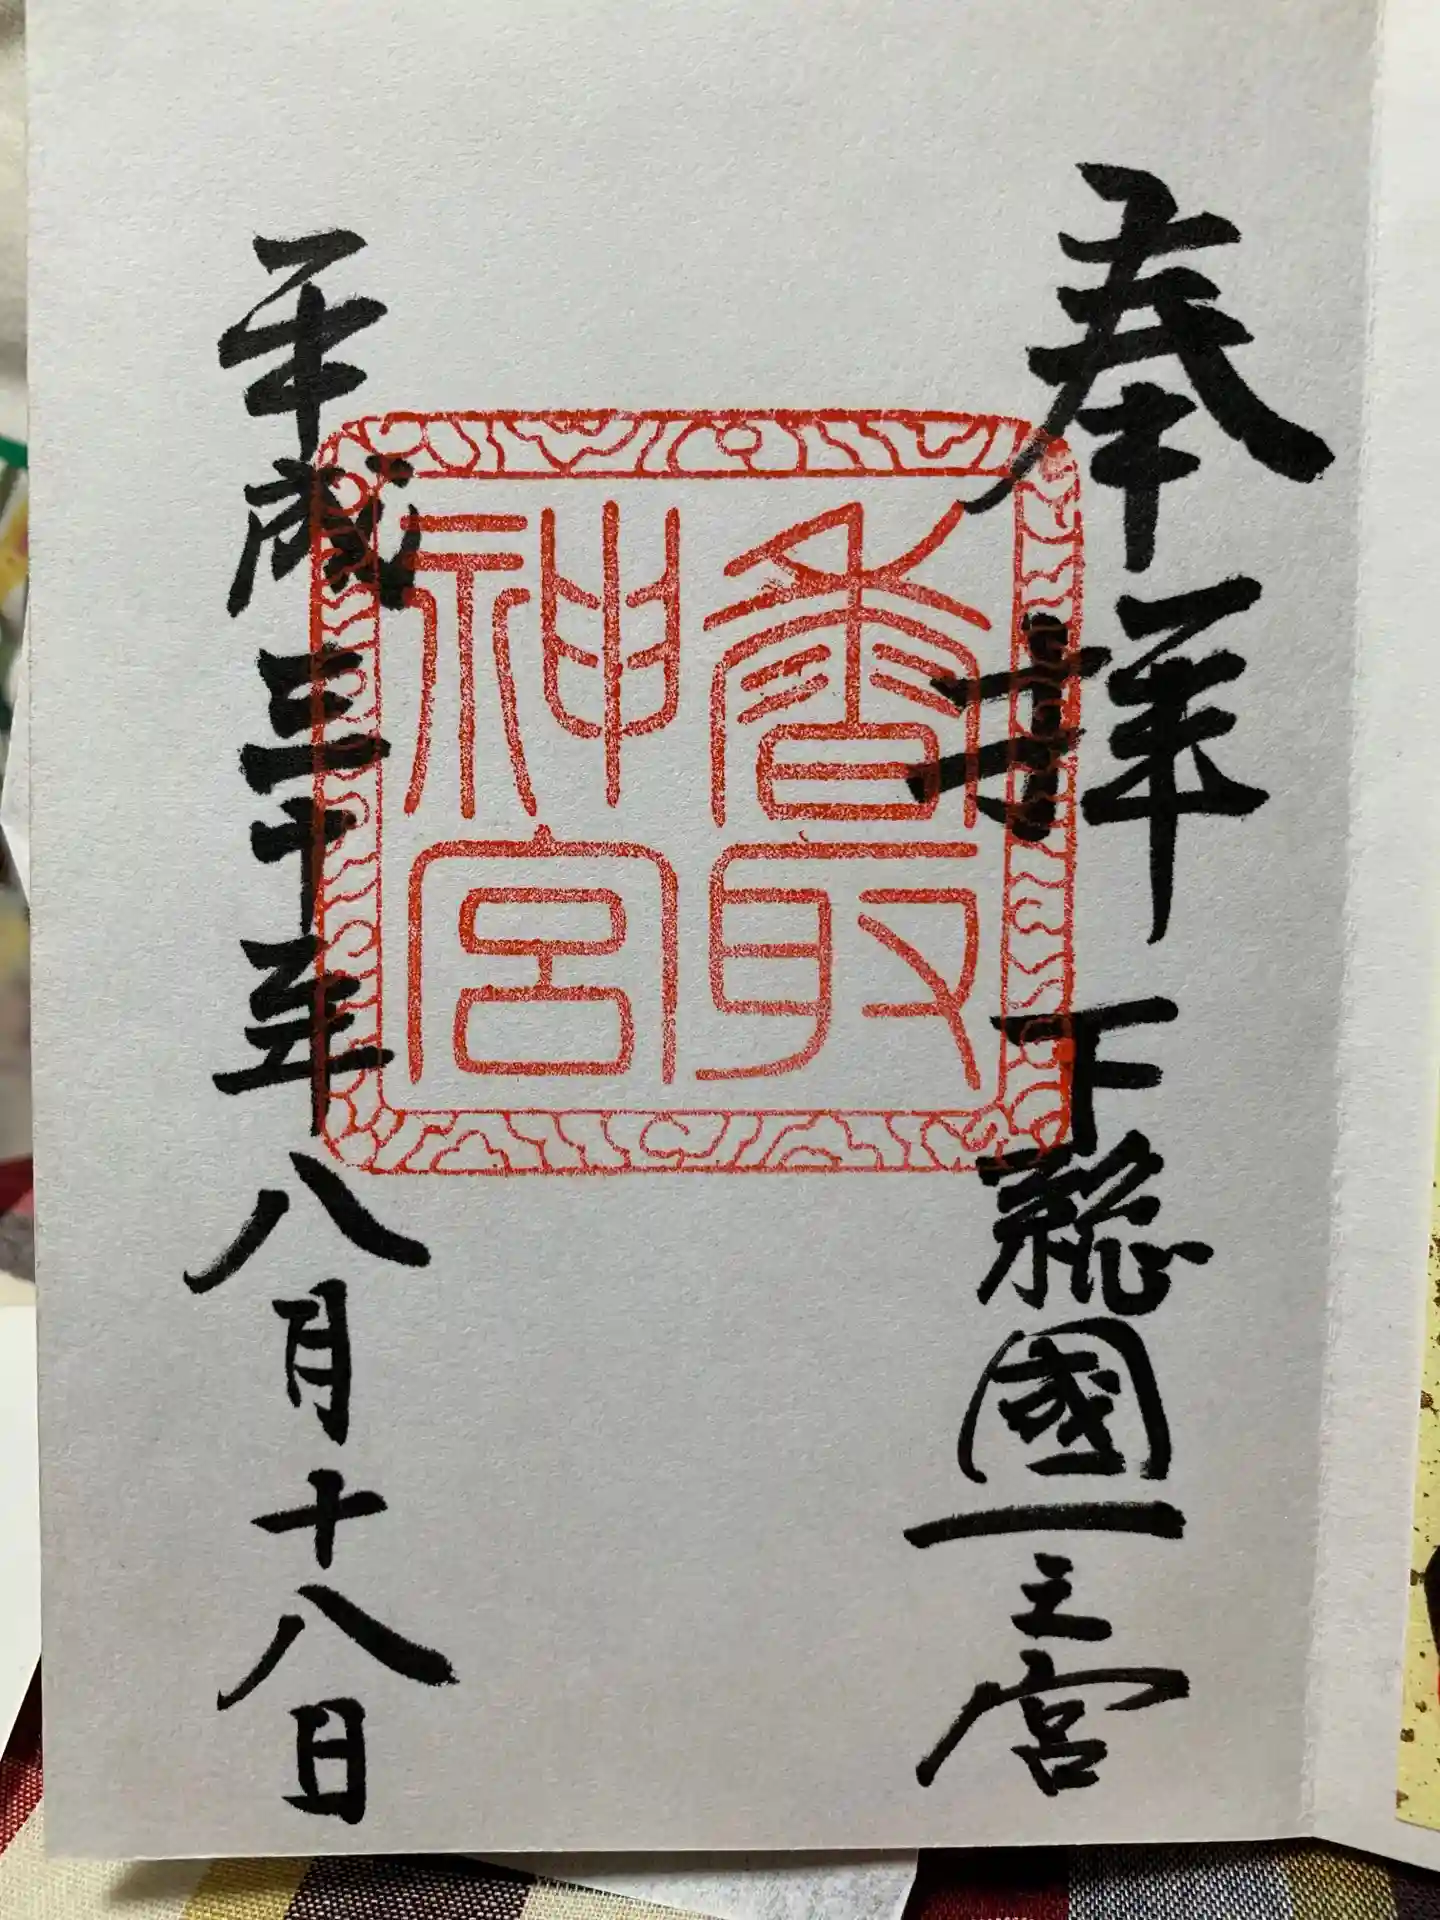 奉拜
下總國一之宮
香取
神宮
平成三十年八月十八日